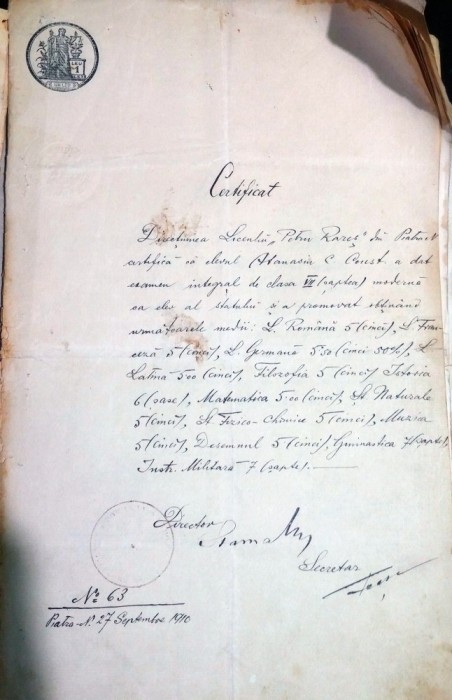 LEU
1
Certificat
Direcțiunea Liceului „Petru Rareș" din Piatra-N
certifică că elevul Atanasiu C Const. a dat
examen integral de clasa VII (șaptea) modernă
ca elev al statului și a promovat obținând
următoarele medii: L. Română 5 (cinci), L. Fran-
ceză 5 (cinci), L. Germană 5·50 (cinci 50%), L.
Latină 5·00 (cinci), Filozofia 5 (cinci) Istoria
6 (șase), Matematica 5·00 (cinci), Șt Naturale
5 (cinci), Șt Fizico-Chimice 5 (cinci), Muzica
5 (cinci), Desemnul 5 (cinci), Gimnastica 7 (șapte),
Instr. Militară 7 (șapte).
Director
Secretar
№ 63
Piatra-N. 27 Septembrie 1910